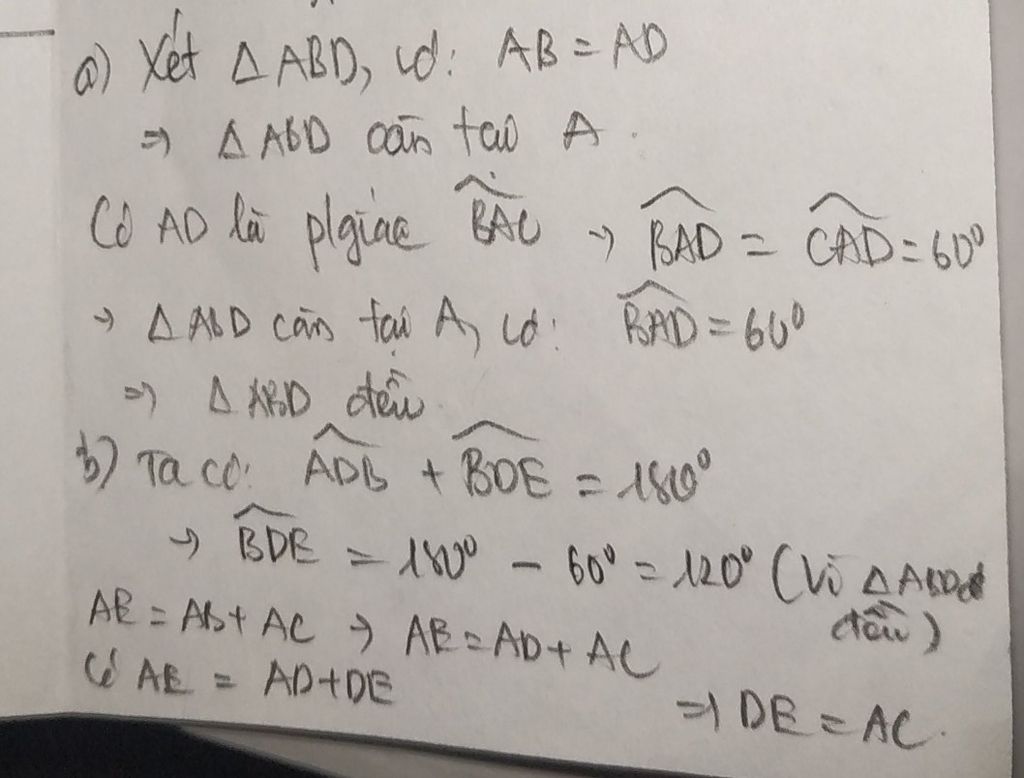 a) Xét Δ ABD, có: AB = AD
⇒ Δ ABD cân tại A.
Có AD là p/giác \widehat{BAC} → \widehat{BAD} = \widehat{CAD} = 60°
→ Δ ABD cân tại A, có: \widehat{BAD} = 60°
⇒ Δ ABD đều.
b) Ta có: \widehat{ADB} + \widehat{BDE} = 180°
→ \widehat{BDE} = 180° - 60° = 120° (Vì Δ ABD
đều)
AE = AB + AC → AE = AD + AC
Có AE = AD + DE
⇒ DE = AC.